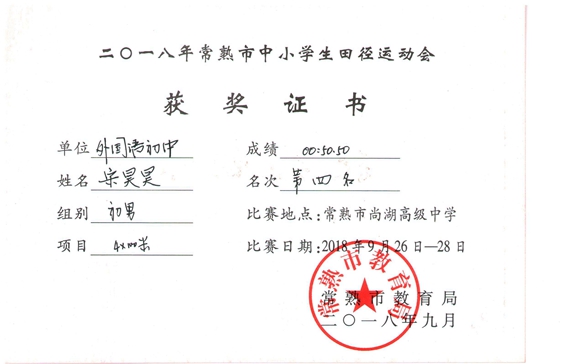 二〇一八年常熟市中小学生田径运动会
获奖证书
单位 外国语初中 成绩 00:50.50
姓名 宋昊昊 名次 第四名
组别 初男 比赛地点：常熟市尚湖高级中学
项目 4x100米 比赛日期：2018年9月26日—28日
常熟市教育局
常熟市教育局
二〇一八年九月